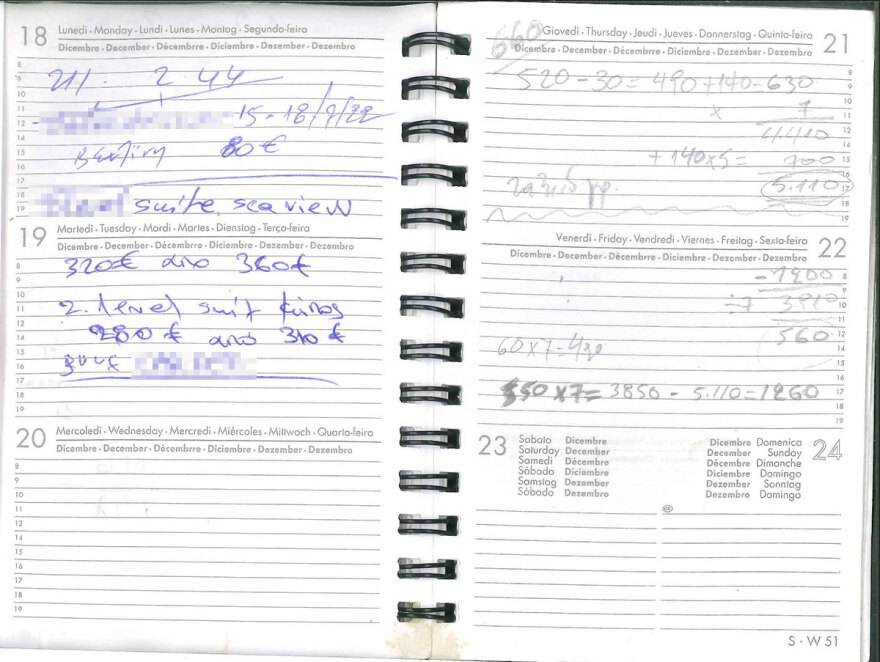 18 Lunedì • Monday • Lundi • Lunes • Montag • Segunda-feira
Dicembre • December • Décembrre • Diciembre • Dezember • Dezembro
8
9
211. 2 44
10
11
12 15-18/9/22
14
15 80€
16
17
18
19 suite sea view
19 Martedì • Tuesday • Mardi • Martes • Dienstag • Terça-feira
Dicembre • December • Décembrre • Diciembre • Dezember • Dezembro
8 320€ ano 360€
9
10
11 2. level suit
12
14 280€ ano 310€
15
16
17
18
19
20 Mercoledì • Wednesday • Mercredi • Miércoles • Mittwoch • Quarta-feira
Dicembre • December • Décembrre • Diciembre • Dezember • Dezembro
8
9
10
11
12
14
15
16
17
18
19
660
Giovedì • Thursday • Jeudi • Jueves • Donnerstag • Quinta-feira 21
Dicembre • December • Décembrre • Diciembre • Dezember • Dezembro
8
520-30=490+140=630
9
10
x 7
11
4.410 12
14
+140x5= 700 15
16
5.110 17
18
19
Venerdì • Friday • Vendredi • Viernes • Freitag • Sexta-feira 22
Dicembre • December • Décembrre • Diciembre • Dezember • Dezembro
-1200 8
9
÷7 3910 10
11
560 12
60x7=420 14
15
16
550x7=3850-5.110=1260 17
18
19
23 Sabato Dicembre
Saturday December
Samedi Décembre
Sábado Diciembre
Samstag Dezember
Sábado Dezembro
Dicembre Domenica 24
December Sunday
Décembre Dimanche
Diciembre Domingo
Dezember Sonntag
Dezembro Domingo
S • W 51